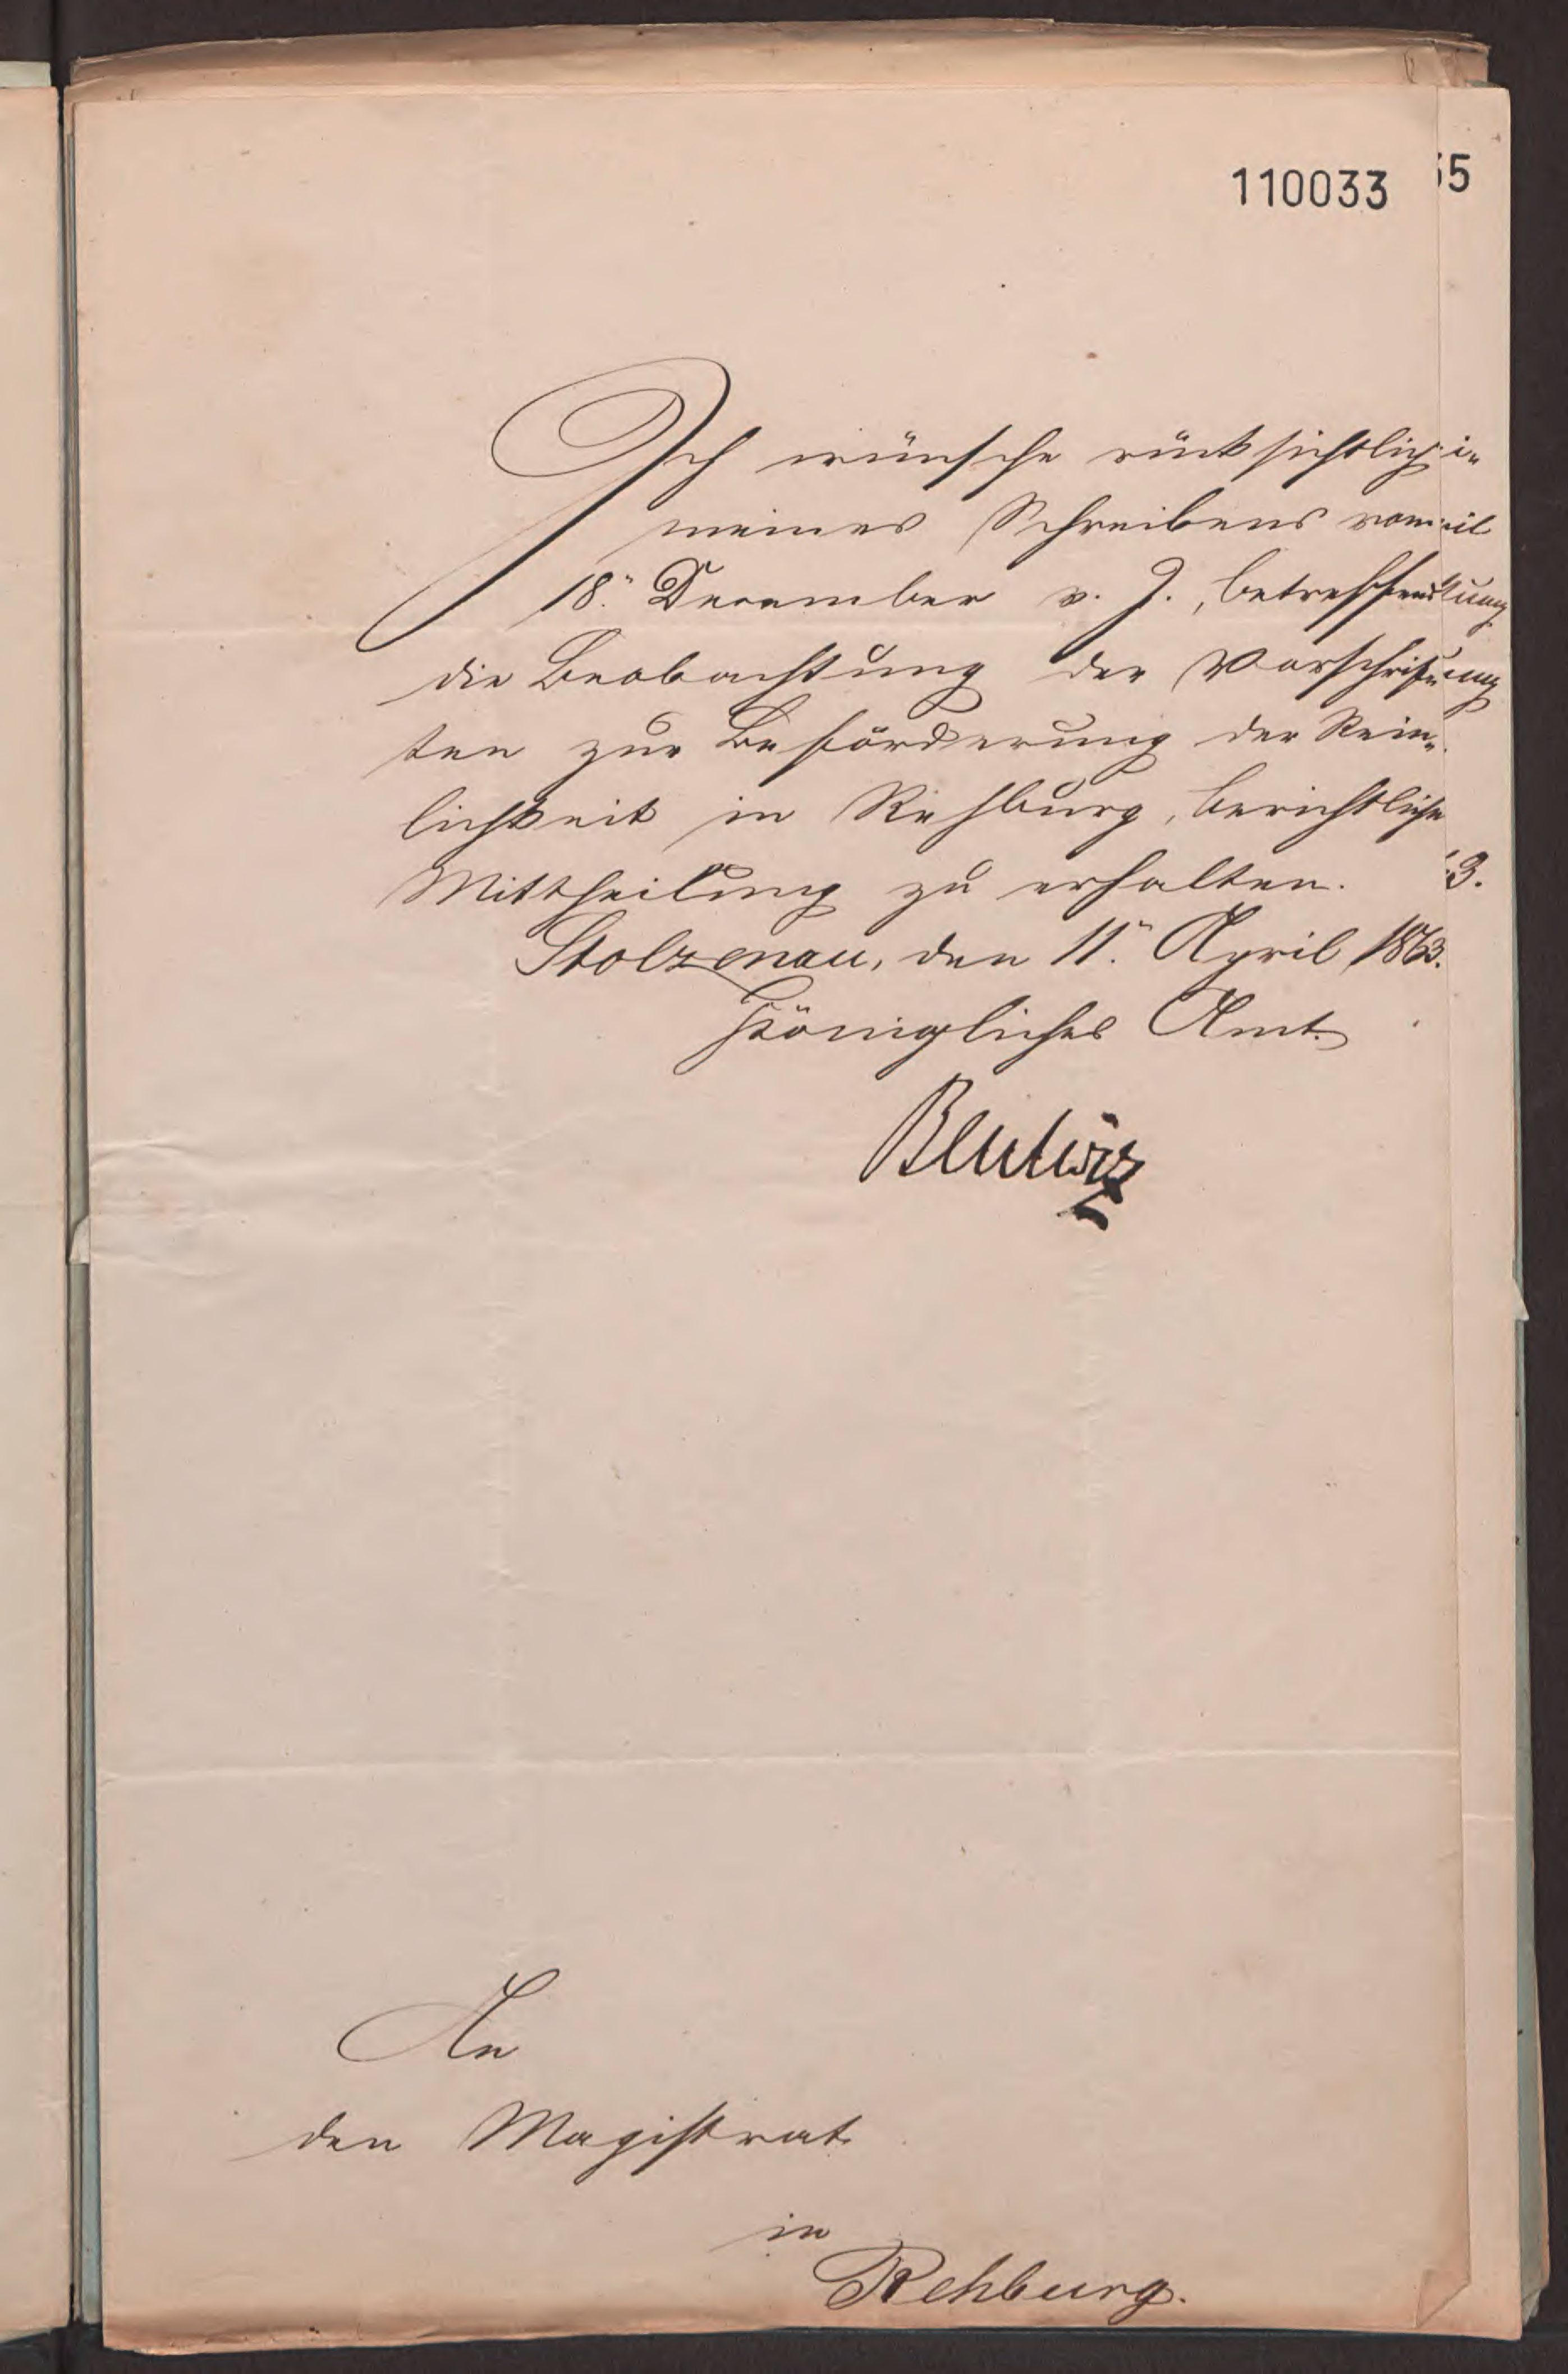 110033
55
Ich wünsche rücksichtlich
meines Schreibens vom
18. December v. J., betreffend
die Beobachtung der Vorschrif-
ten zur Beförderung der Rein-
lichkeit in Rehburg, berichtliche
Mittheilung zu erhalten.
Stolzenau, den 11. April 1863.
Königliches Amt.
An
den Magistrat
in
Rehburg.